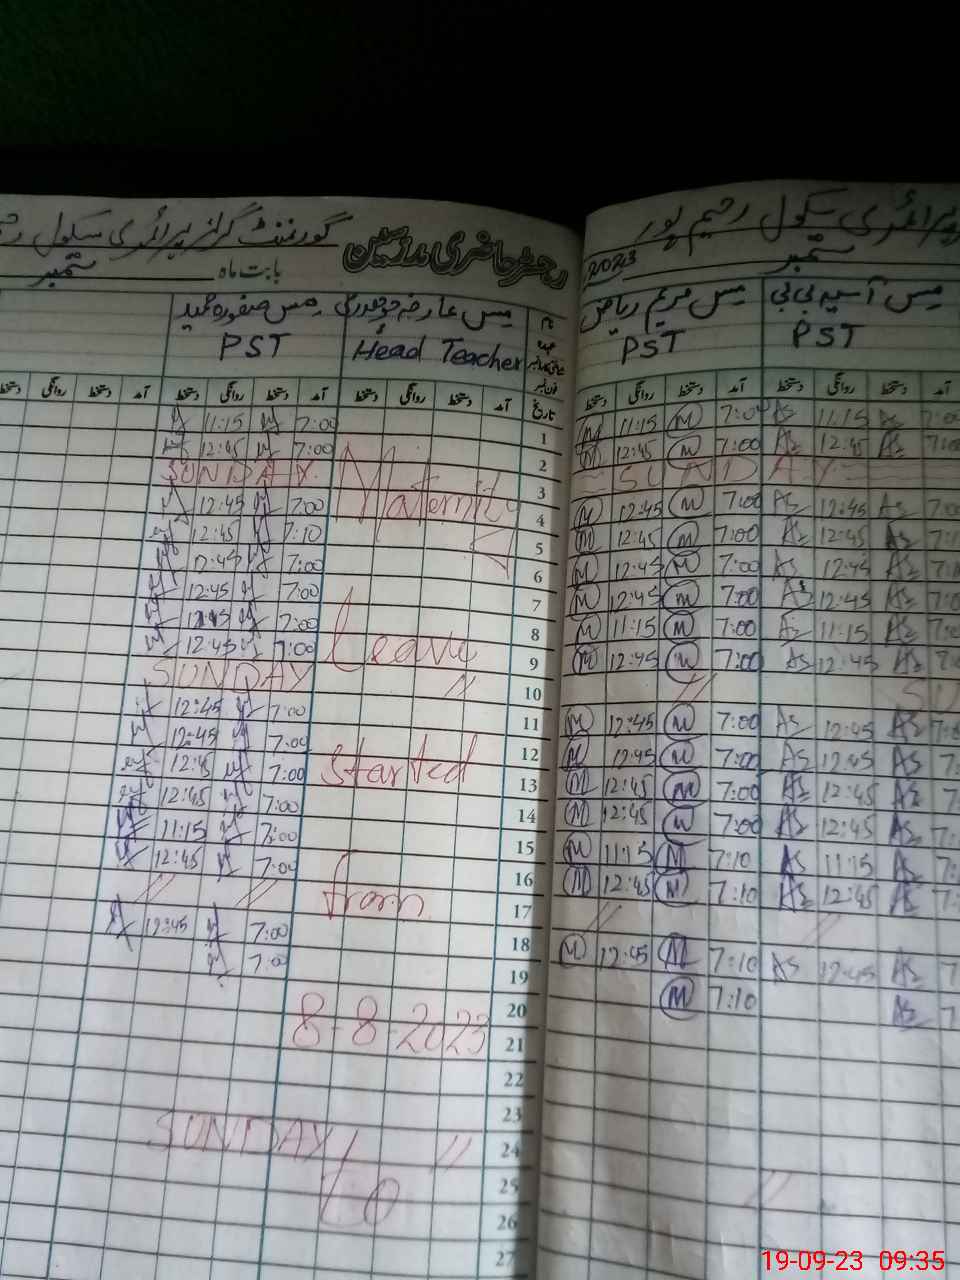 گورنمنٹ گرلز پرائمری سکول
رجسٹر حاضری مدرسین
بابت ماہ ستمبر
مس عارفہ چوہدری
Head Teacher
PST
آمد دستخط روانگی دستخط آمد دستخط روانگی دستخط آمد دستخط روانگی دستخط
تاریخ
1 7:00 11:15
2 7:00 12:45
3 SUNDAY
4 7:00 12:45
5 7:10 12:45
6 7:00 12:45
7 7:00 12:45
8 7:00
9 7:00 12:45
10 SUNDAY
11 7:00 12:45
12 7:00 12:45
13 7:00 12:45
14 7:00 12:45
15 7:00 11:15
16 7:00 12:45
17
18 7:00 12:45
19 7:00
20
21
22
23
24 SUNDAY
25
26
27
Maternity
Leave
started
from
8-8-2023
To
پرائمری سکول رحیم پور
ستمبر
2023
مس مریم ریاض
PST
مس آسیہ بی بی
PST
آمد دستخط روانگی دستخط آمد دستخط روانگی دستخط
M 11:15 M 7:00 As 11:15 As
M 12:45 M 7:00 As 12:45 As
SUNDAY
M 12:45 M 7:00 As 12:45 As
M 12:45 M 7:00 As 12:45 As
M 12:45 M 7:00 As 12:45 As
M 12:45 M 7:00 As 12:45 As
M 11:15 M 7:00 As 11:15 As
M 12:45 M 7:00 As 12:45 As
M 12:45 M 7:00 As 12:45 As
M 12:45 M 7:00 As 12:45 As
M 12:45 M 7:00 As 12:45 As
M 12:45 M 7:00 As 12:45 As
M 11:15 M 7:10 As 11:15 As
M 12:45 M 7:10 As 12:45 As
M 12:45 M 7:10 As 12:45 As
M 7:10 As
19-09-23 09:35